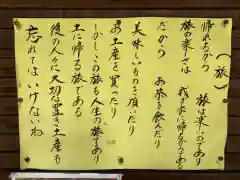 (旅)
帰れるから 旅は楽しいのであり
旅の楽しさは 我が家に帰るからある
だから お茶を飲んだり
美味しいものを頂いたり
お土産を買ったり
しかしこの旅も人生の旅であり
土に帰る旅である
後の人々に大切な置き土産も
忘れてはいけないね